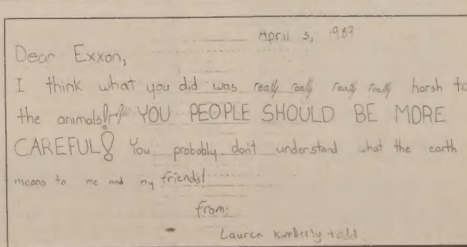 April 3, 1989
Dear Exxon,
I think what you did was really really really really harsh to
the animals!!! YOU PEOPLE SHOULD BE MORE
CAREFUL! You probably don't understand what the earth
means to me and my friends!
from:
Lauren Kimberly